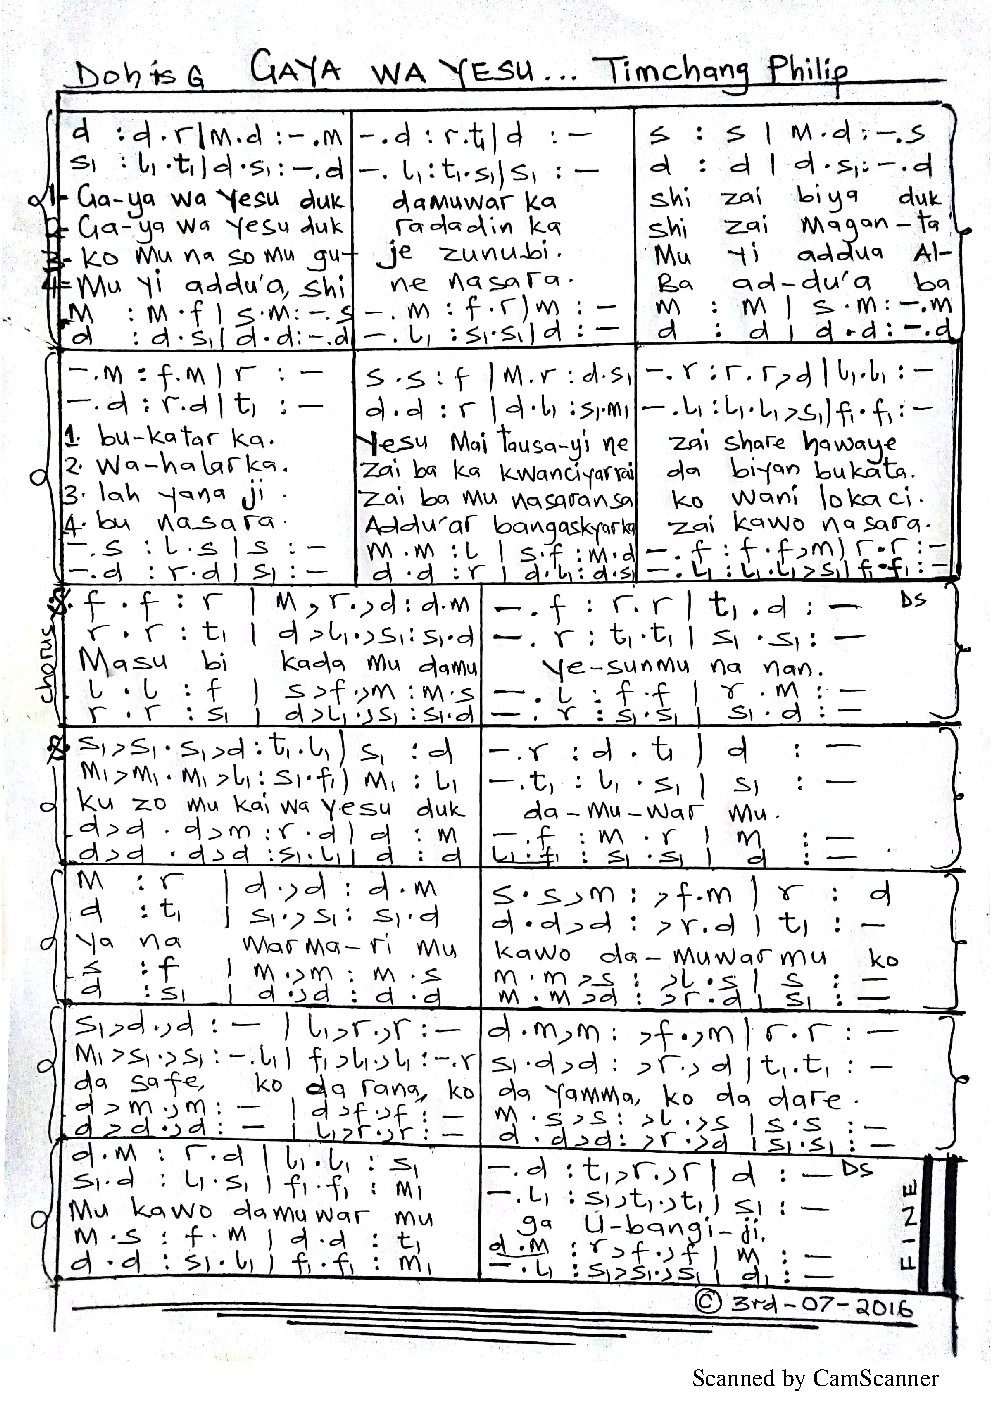 Doh is G   GAYA WA YESU... Timchang Philip
d : d.r | m.d : -.m   -.d : r.t₁ | d : -   s : s | m.d : -.s
s₁ : l₁.t₁ | d.s₁ : -.d   -.l₁ : t₁.s₁ | s₁ : -   d : d | d.s₁ : -.d
1- Ga-ya wa Yesu duk   damuwar ka   shi zai biya duk
2- Ga-ya wa Yesu duk   radadin ka   shi zai Magan-ta
3- ko Mu na so mu gu-   je zunubi.   Mu yi addua Al-
4- Mu Yi addu'a, shi   ne nasara.   Ba ad-du'a ba
m : m.f | s.m : -.s   -.m : f.r | m : -   m : m | s.m : -.m
d : d.s₁ | d.d : -.d   -.l₁ : s₁.s₁ | d : -   d : d | d.d : -.d
-.m : f.m | r : -   s.s : f | m.r : d.s₁   -.r : r.r>d | l₁.l₁ : -
-.d : r.d | t₁ : -   d.d : r | d.l₁ : s₁.m₁   -.l₁ : l₁.l₁>s₁ | f₁.f₁ : -
1. bu-katar ka.   Yesu Mai tausa-yi ne   zai share hawaye
2. wa-halar ka.   zai ba ka kwanciyar rai   da biyan bukata.
3. lah yana ji.   zai ba mu nasaran sa   ko wani lokaci.
4. bu nasara.   Addu'ar bangaskyar ka   zai kawo nasara.
-.s : l.s | s : -   m.m : l | s.f : m.d   -.f : f.f>m | r.r : -
-.d : r.d | s₁ : -   d.d : r | d.l₁ : d.s₁   -.l₁ : l₁.l₁>s₁ | f₁.f₁ : -
chorus
f.f : r | m>r.>d : d.m   -.f : r.r | t₁.d : -   DS
r.r : t₁ | d>l₁.>s₁ : s₁.d   -.r : t₁.t₁ | s₁.s₁ : -
Masu bi kada mu damu   Ye-sunmu na nan.
l.l : f | s>f.>m : m.s   -.l : f.f | r.m : -
r.r : s₁ | d>l₁.>s₁ : s₁.d   -.r : s₁.s₁ | s₁.d : -
s₁>s₁.s₁>d : t₁.l₁ | s₁ : d   -.r : d.t₁ | d : -
m₁>m₁.m₁>l₁ : s₁.f₁ | m₁ : l₁   -.t₁ : l₁.s₁ | s₁ : -
ku zo mu kai wa Yesu duk   da-mu-war mu.
d>d.d>m : r.d | d : m   -.f : m.r | m : -
d>d.d>d : s₁.l₁ | d : d   l₁.f₁ : s₁.s₁ | d : -
m : r | d.>d : d.m   s.s>m : >f.m | r : d
d : t₁ | s₁.>s₁ : s₁.d   d.d>d : >r.d | t₁ : -
Ya na marma-ri mu   kawo da-muwar mu ko
s : f | m.>m : m.s   m.m>s : >l.s | s : -
d : s₁ | d.>d : d.d   m.m>d : >r.d | s₁ : -
s₁>d.>d : - | l₁>r.>r : -   d.m>m : >f.>m | r.r : -
m₁>s₁.>s₁ : -.l₁ | f₁>l₁.>l₁ : -.r   s₁.d>d : >r.>d | t₁.t₁ : -
da safe, ko da rana, ko   da yamma, ko da dare.
d>m.>m : - | d>f.>f : -   m.s>s : >l.>s | s.s : -
d>d.>d : - | l₁>r.>r : -   d.d>d : >r.>d | s₁.s₁ : -
d.m : r.d | l₁.l₁ : s₁   -.d : t₁>r.>r | d : - DS
s₁.d : l₁.s₁ | f₁.f₁ : m₁   -.l₁ : s₁>t₁.>t₁ | s₁ : -
Mu kawo damuwar mu   ga U-bangi-ji.
m.s : f.m | d.d : t₁   d.m : r>f.>f | m : -
d.d : s₁.l₁ | f₁.f₁ : m₁   -.l₁ : s₁>s₁.>s₁ | d₁ : -
FINE
© 3rd-07-2016
Scanned by CamScanner